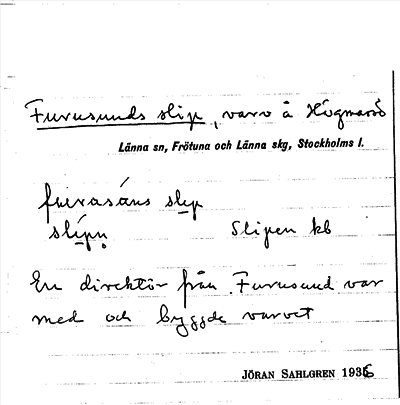 Furusunds slip, varv å Högmarsö
Länna sn, Frötuna och Länna skg, Stockholms l.
fúrɐsáns slip
slípn̥ Slipen kb
En direktör från Furusund var
med och byggde varvet
JÖRAN SAHLGREN 1936